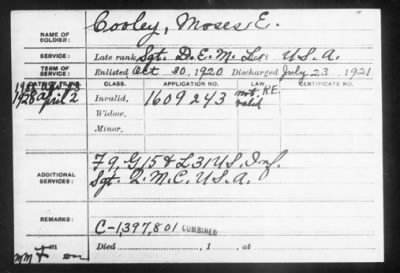 NAME OF SOLDIER: Cooley, Moses E.
SERVICE: Late rank Sgt. D.E.M.L. U.S.A.
TERM OF SERVICE: Enlisted Oct 30, 1920 Discharged July 23, 1921
CLASS. APPLICATION NO. LAW. CERTIFICATE NO.
1928 April 2 Invalid, 1609243 not valid R.E.
Widow,
Minor,
ADDITIONAL SERVICES: F 9, G 15 & L 31 U.S. Inf.
Sgt. Q.M.C. U.S.A.
REMARKS: C-1,397,801 COMBINED
Died , 1 at